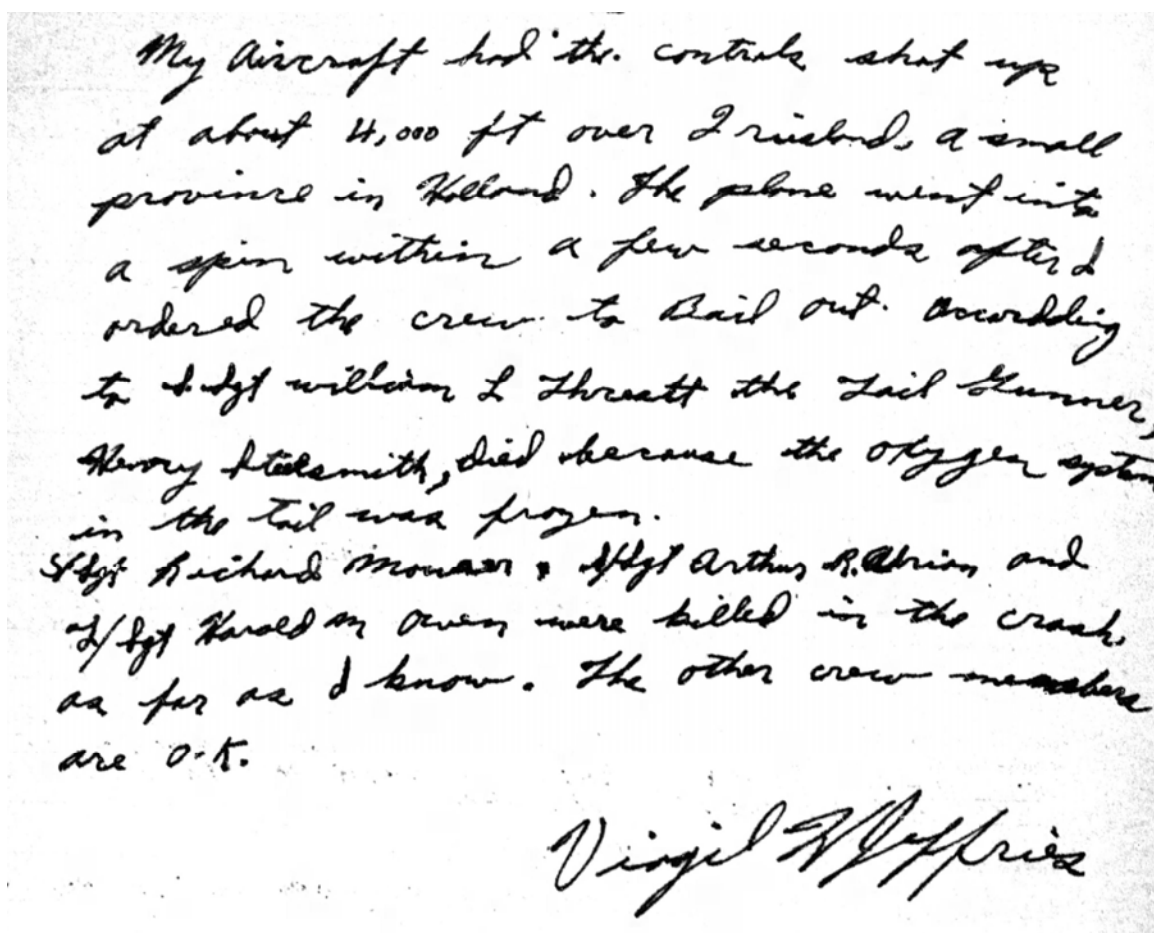 My Aircraft had the controls shot up
at about 4,000 ft over Friesland, a small
province in Holland. The plane went into
a spin within a few seconds after I
ordered the crew to Bail out. Accordding
to S.Sgt william L Threatt the Tail Gunner,
Henry Steelsmith, died because the oxygen system
in the tail was frozen.
S/Sgt Richard Mouser, S/Sgt Arthur R. Adrian and
T/Sgt Harold M Owen were killed in the crash
as far as I know. The other crew members
are O.K.
Virgil Jeffries